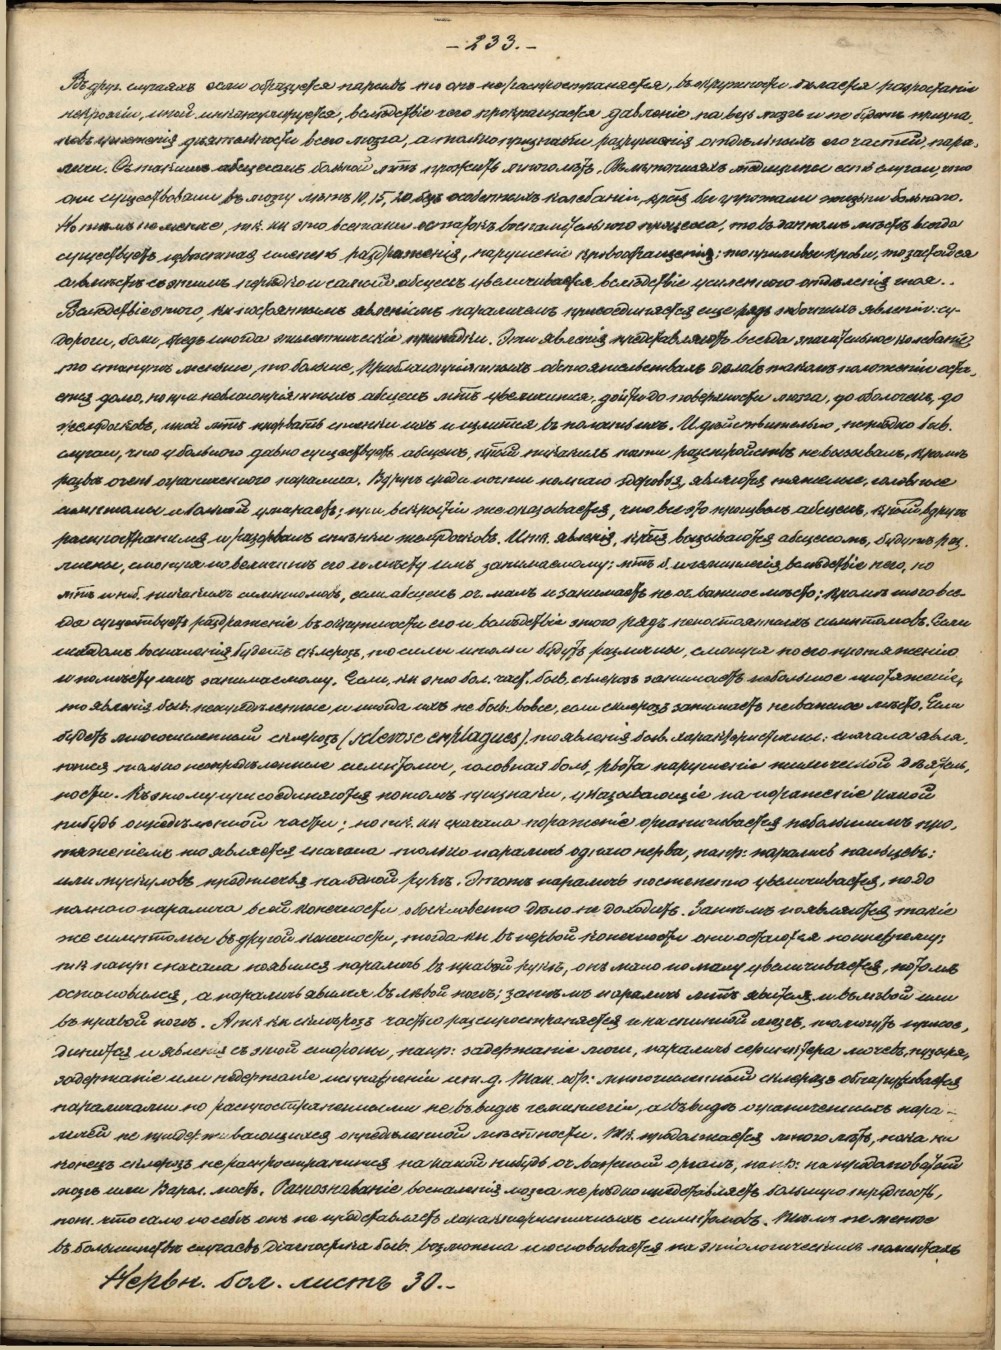 – 233. –
Въ друг. случаяхъ если образуется нарывъ то онъ не распространяется, въ окружности дѣлается разростаніе
невроглiи, гной инкапсулируется, вслѣдствіе чего прекращается давленіе на весь мозгъ и не будетъ призна-
ковъ угнетенія дѣятельности всего мозга, а только признаки разрушенія отдѣльныхъ его частей, пара-
личи. Съ такимъ абсцесомъ больной мтъ прожить много лѣтъ. Въ медицины есть случаи, что
они существовали въ мозгу лѣтъ 10, 15, 20 безъ особенныхъ колебаній, кот. бы угрожали жизни больного.
Но тѣмъ не менѣе, т.к. это все таки остатокъ воспалительнаго процесса, то въ данномъ мѣстѣ всегда
существуетъ извѣстная степень раздраженія, нарушенія кровообращенія: то приливъ крови, то застой
а вмѣстѣ съ этимъ нерѣдко и самый абсцесъ увеличивается вслѣдствіе усиленнаго отдѣленія гноя..
Вслѣдствіе этого, къ постояннымъ явленіямъ параличамъ присоединяется еще рядъ побочныхъ явленій: су-
дороги, боли, иногда эпилептическіе припадки. Эти явленія представляютъ всегда значительное колебаніе,
то станутъ меньше, то больше, при благопріятныхъ обстоятельствахъ дѣло въ такомъ положеніи оста-
ется долго, но при неблагопріятныхъ абсцесъ мтъ увеличиться, дойти до поверхности мозга, до оболочекъ, до
желудочковъ, гной мтъ прорвать стѣнки ихъ и излиться въ полость ихъ. И дѣйствительно, нерѣдко быв.
случаи, что у больного давно существуетъ абсцесъ, который никакихъ почти разстройствъ не вызывалъ, кромѣ
развѣ очень ограниченнаго паралича. Вдругъ среди почти полнаго здоровья, являются тяжелые, головные
симптомы и больной умираетъ; при вскрытіи же оказывается, что все это произвелъ абсцесъ, который вдругъ
распространился и разорвалъ стѣнки желудочковъ. И т.к. явленія, которыя вызываются абсцесомъ, будутъ раз-
личны, смотря по величинѣ его и мѣсту имъ занимаемому: мтъ б. и гемиплегія вслѣдствіе него, но
мтъ и не б. никакихъ симптомовъ, если абсцесъ оч. малъ и занимаетъ не оч. важное мѣсто; кромѣ того все-
гда существуетъ раздраженіе въ окружности его и вслѣдствіе этого рядъ непостоянныхъ симптомовъ. Если
исходомъ воспаленія будетъ склерозъ, то симптомы будутъ различны, смотря по его протяженію
и по мѣсту имъ занимаемому. Если, какъ это бол. част. быв. склерозъ занимаетъ небольшое протяженіе,
то явленія быв. неопредѣленные и иногда ихъ не быв. вовсе, если склерозъ занимаетъ неважное мѣсто. Если
будетъ многочисленный склерозъ (sclerose en plagues). то явленія быв. характеристичны: сначала явля-
ются только неопредѣленные симптомы, головная боль, рвота нарушеніе психической дѣятель-
ности. Къ этому присоединяются потомъ признаки, указывающіе на пораженіе какой
нибудь опредѣленной части; но т.к. сначала пораженіе ограничивается небольшимъ про-
тяженіемъ то является сначала только параличъ одного нерва, напр: параличъ пальцевъ:
или мускуловъ предплечья на одной рукѣ. Этотъ параличъ постепенно увеличивается, но до
полнаго паралича всей конечности обыкновенно дѣло не доходитъ. Затѣмъ появляются такіе
же симптомы въ другой конечности, тогда как въ первой конечности они остаются по прежнему:
т.к. напр: сначала появился параличъ въ правой рукѣ, онъ мало по малу увеличивается, потомъ
остановился, а параличъ явился въ лѣвой ногѣ; затѣмъ параличъ мтъ явиться и въ лѣвой или
въ правой ногѣ. А т.к. склерозъ часто распространяется и на спинной мозгъ, то могутъ присое-
диниться и явленія съ этой стороны, напр: задержаніе мочи, параличъ сфинктера мочев. пузыря,
задержаніе или недержаніе испражненій и т.д. Так. обр: многочисленный склерозъ обнаруживается
параличами но распространенными не въ видѣ гемиплегіи, а въ видѣ ограниченныхъ пара-
личей не придерживающихся опредѣленной мѣстности. Т.к. продолжается много лѣтъ, пока на
конецъ склерозъ не распространится на какой нибудь оч. важный органъ, напр: на продолговатый
мозгъ или Варол. мостъ. Распознаваніе воспаленія мозга нерѣдко представляетъ большую трудность,
пот. что само по себѣ онъ не представляетъ характеристичныхъ симптомовъ. Тѣмъ не менѣе
въ большинствѣ случаевъ діагностика быв. возможна и основывается на этіологическихъ моментахъ
Нервн. бол. листъ 30.–